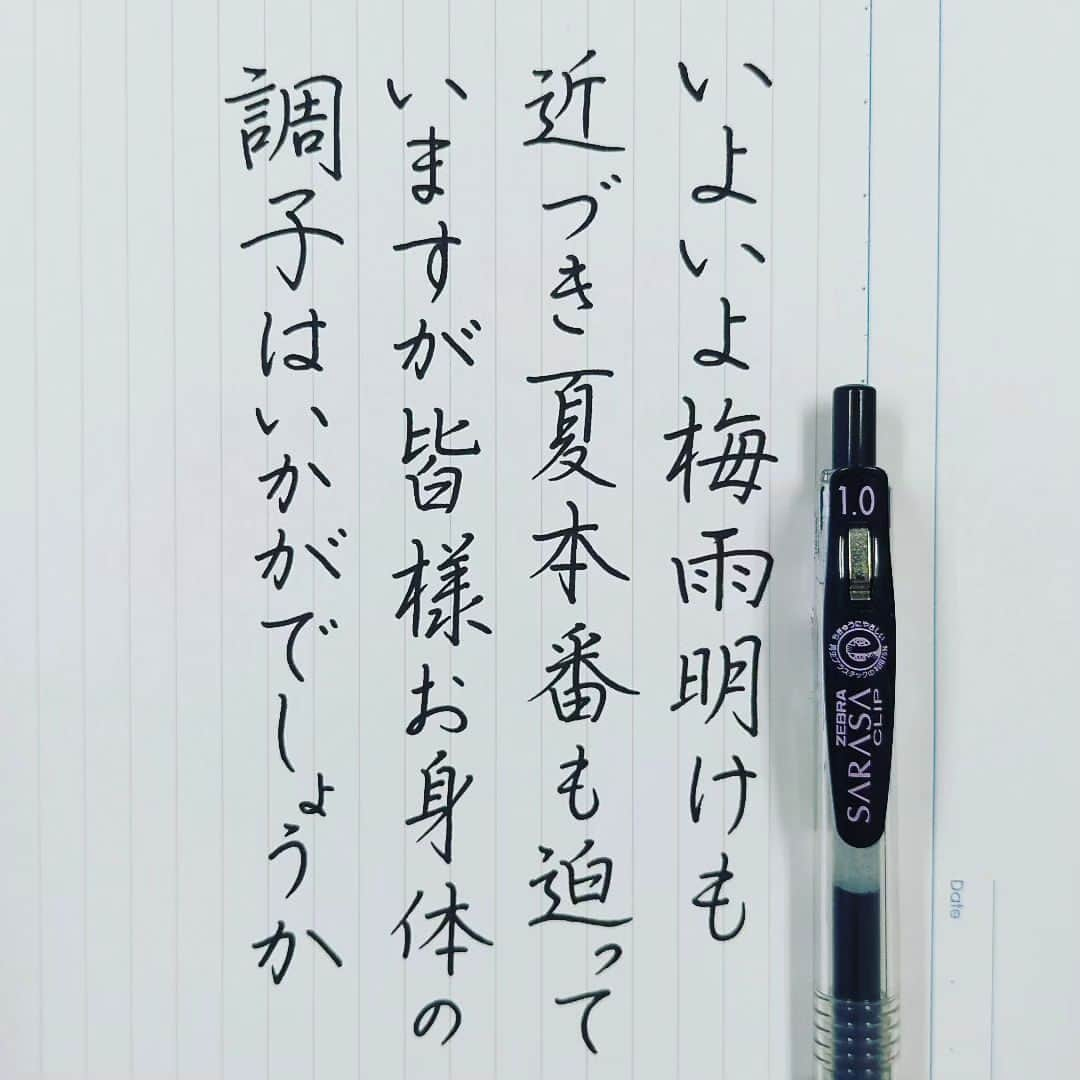 いよいよ梅雨明けも
近づき夏本番も迫って
いますが皆様お身体の
調子はいかがでしょうか
1.0
ZEBRA
SARASA
CLIP
e
Date